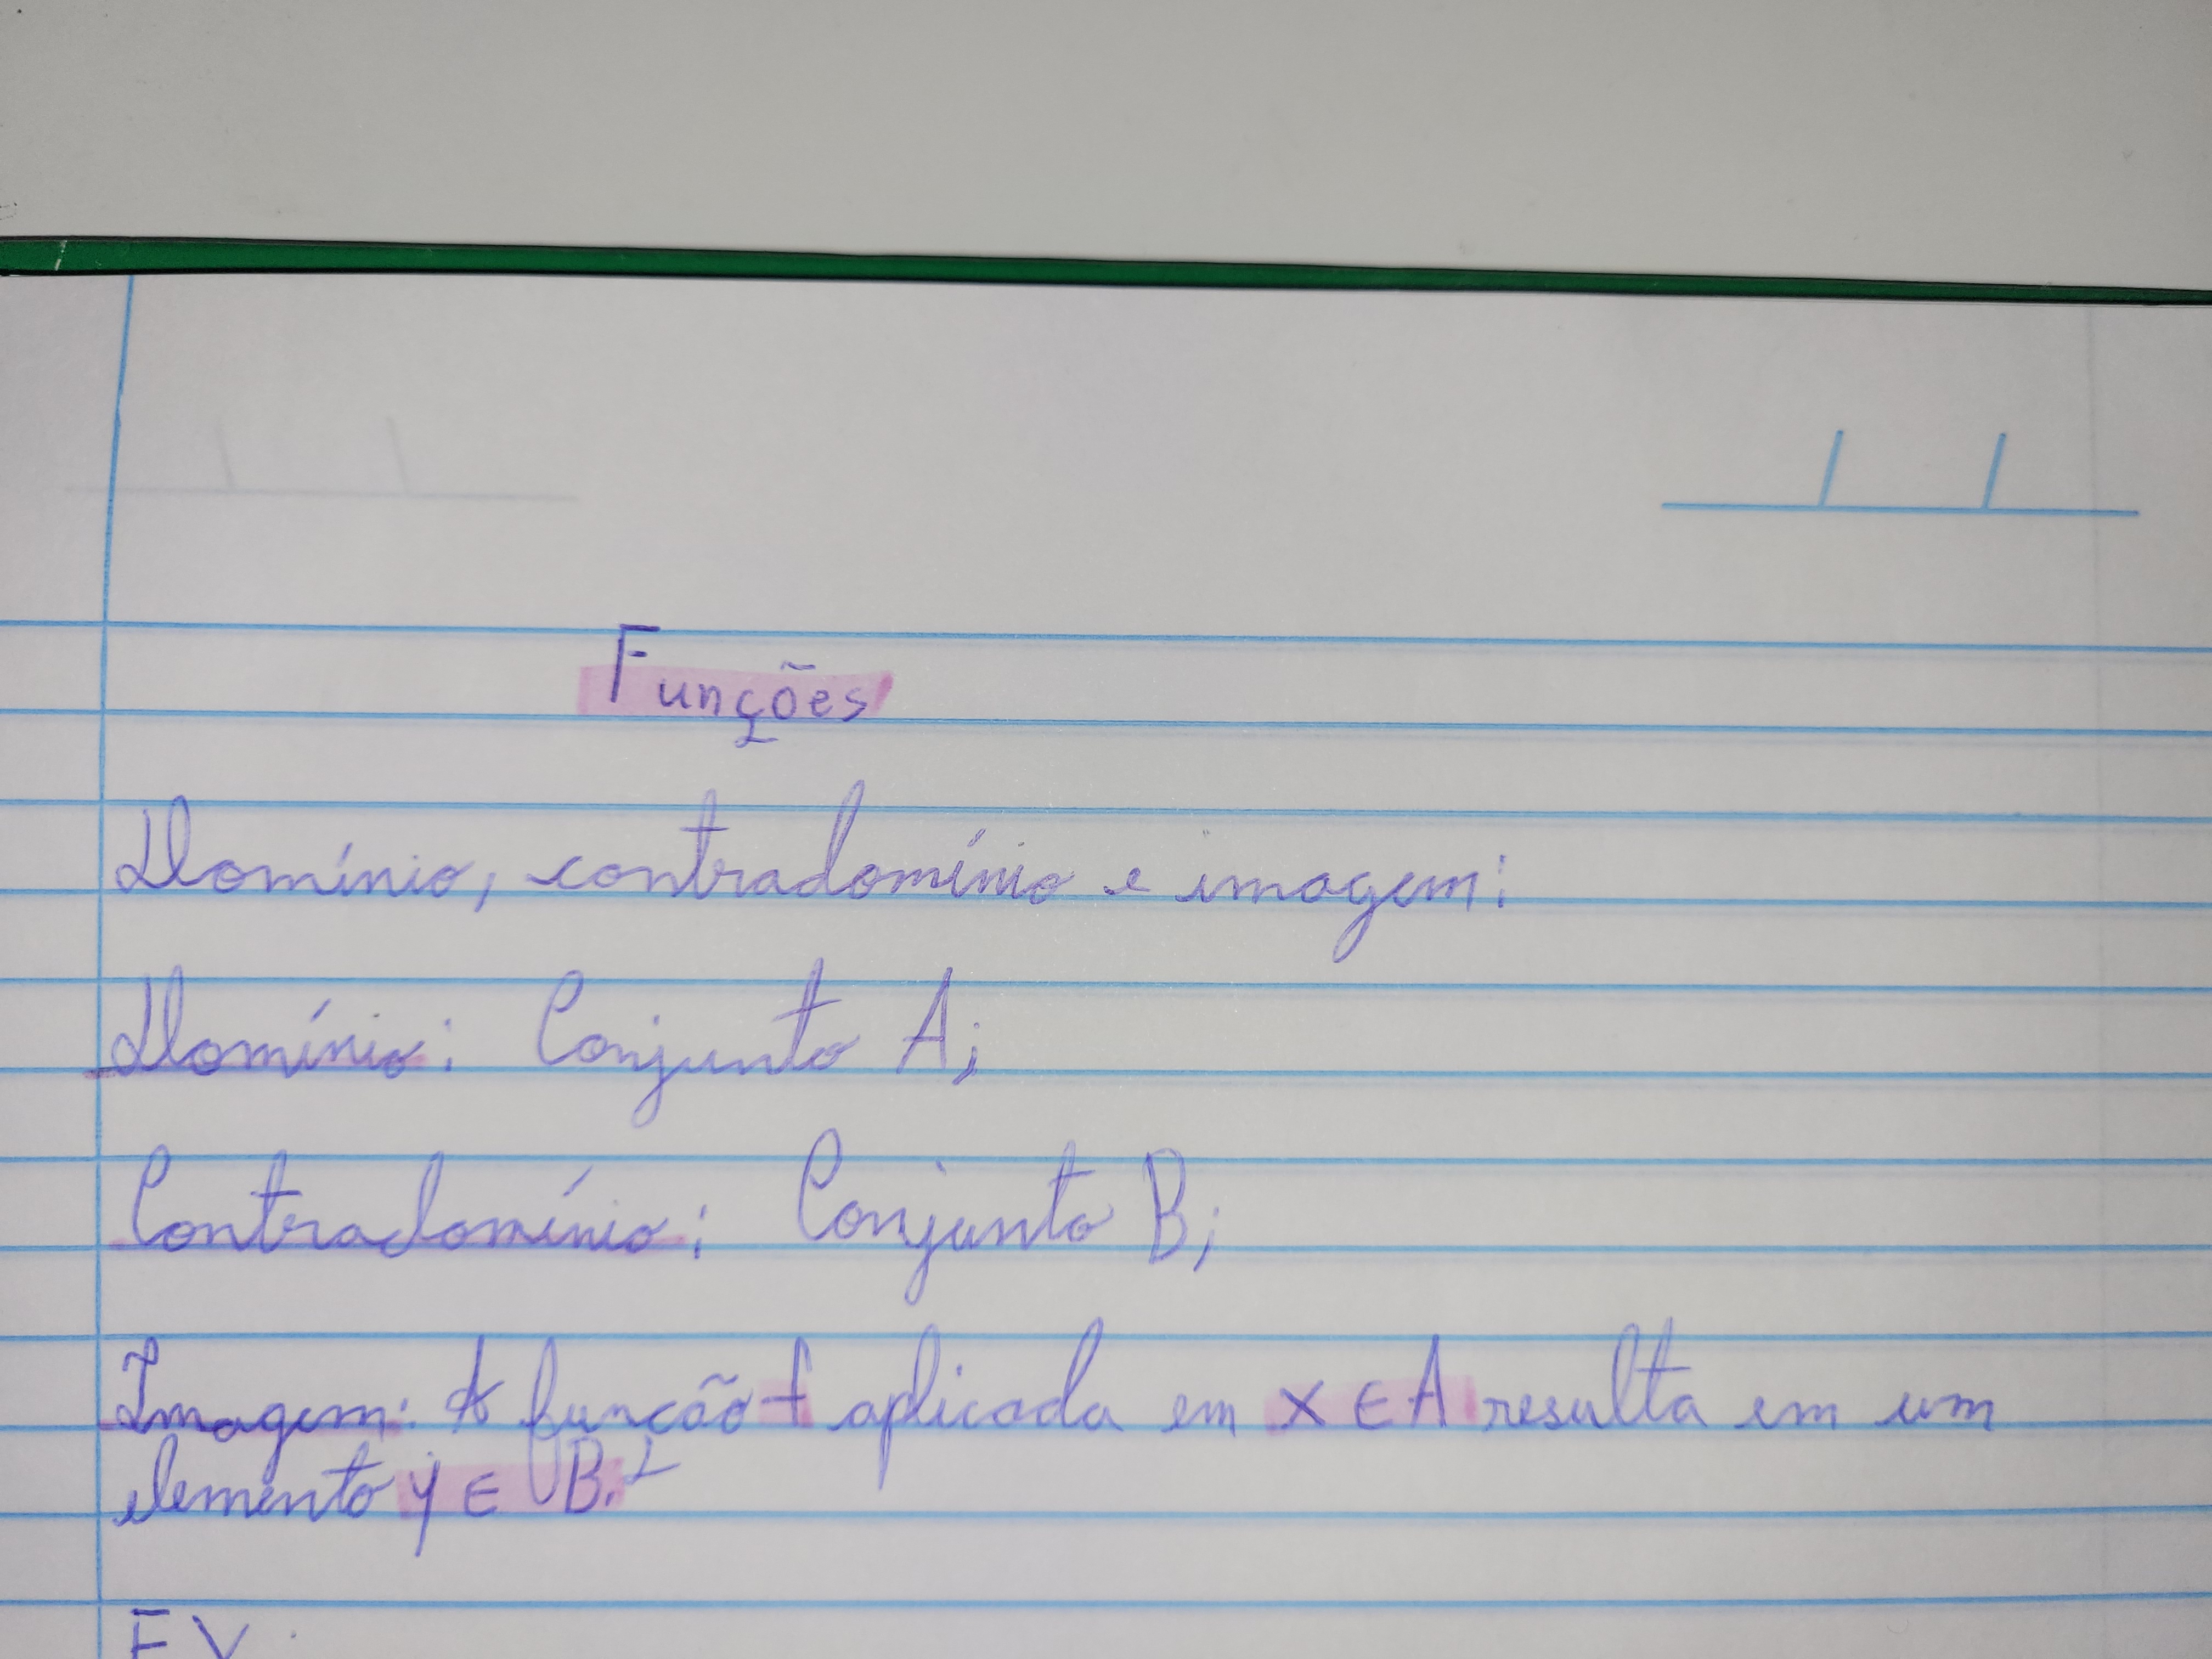 Funções
Domínio, contradomínio e imagem:
Domínio: Conjunto A;
Contradomínio: Conjunto B;
Imagem: A função f aplicada em x ∈ A resulta em um
elemento y ∈ B.
EX: